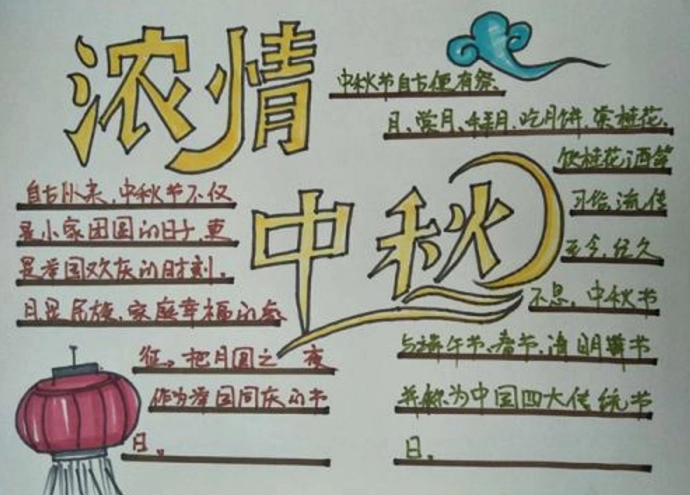 浓情
中秋
中秋节自古便有祭
月、赏月、拜月、吃月饼、赏桂花、
饮桂花酒等
习俗,流传
至今,经久
不息。中秋节
与端午节、春节、清明节
并称为中国四大传统节
日。
自古以来,中秋节不仅
是小家团圆的日子,更
是举国欢庆的时刻。
月是民族、家庭幸福的象
征。把月圆之夜
作为举国同庆的节
日。